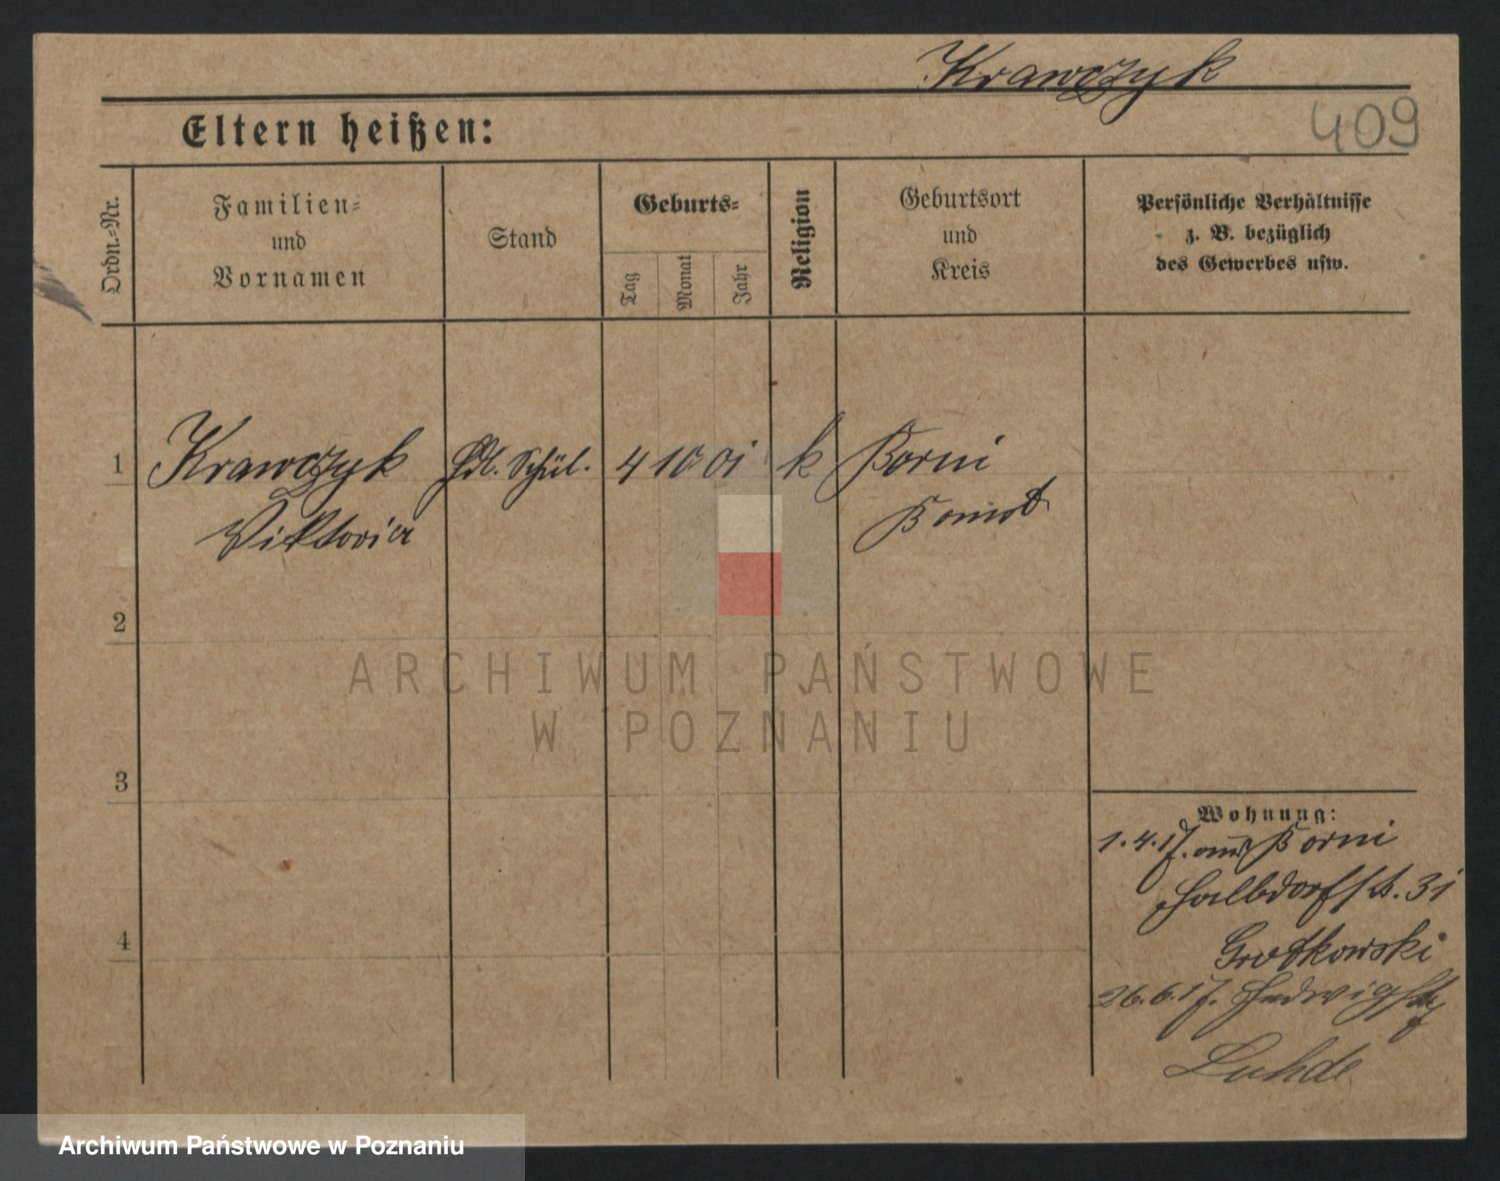 Krawczyk
409
Eltern heißen:
Ordn.-Nr.
Familien-
und
Vornamen
Stand
Geburts-
Tag
Monat
Jahr
Religion
Geburtsort
und
Kreis
Persönliche Verhältnisse
z. B. bezüglich
des Gewerbes usw.
1
Krawczyk
Viktoria
Hdl. Schül.
4 10 01
k
Borni
Bomst
2
3
4
Wohnung:
1.4.17. aus Borni
Halbdorfstr. 31
Grotkowski
26.6.17. Hedwigstr
Luhde
ARCHIWUM PAŃSTWOWE
W POZNANIU
Archiwum Państwowe w Poznaniu